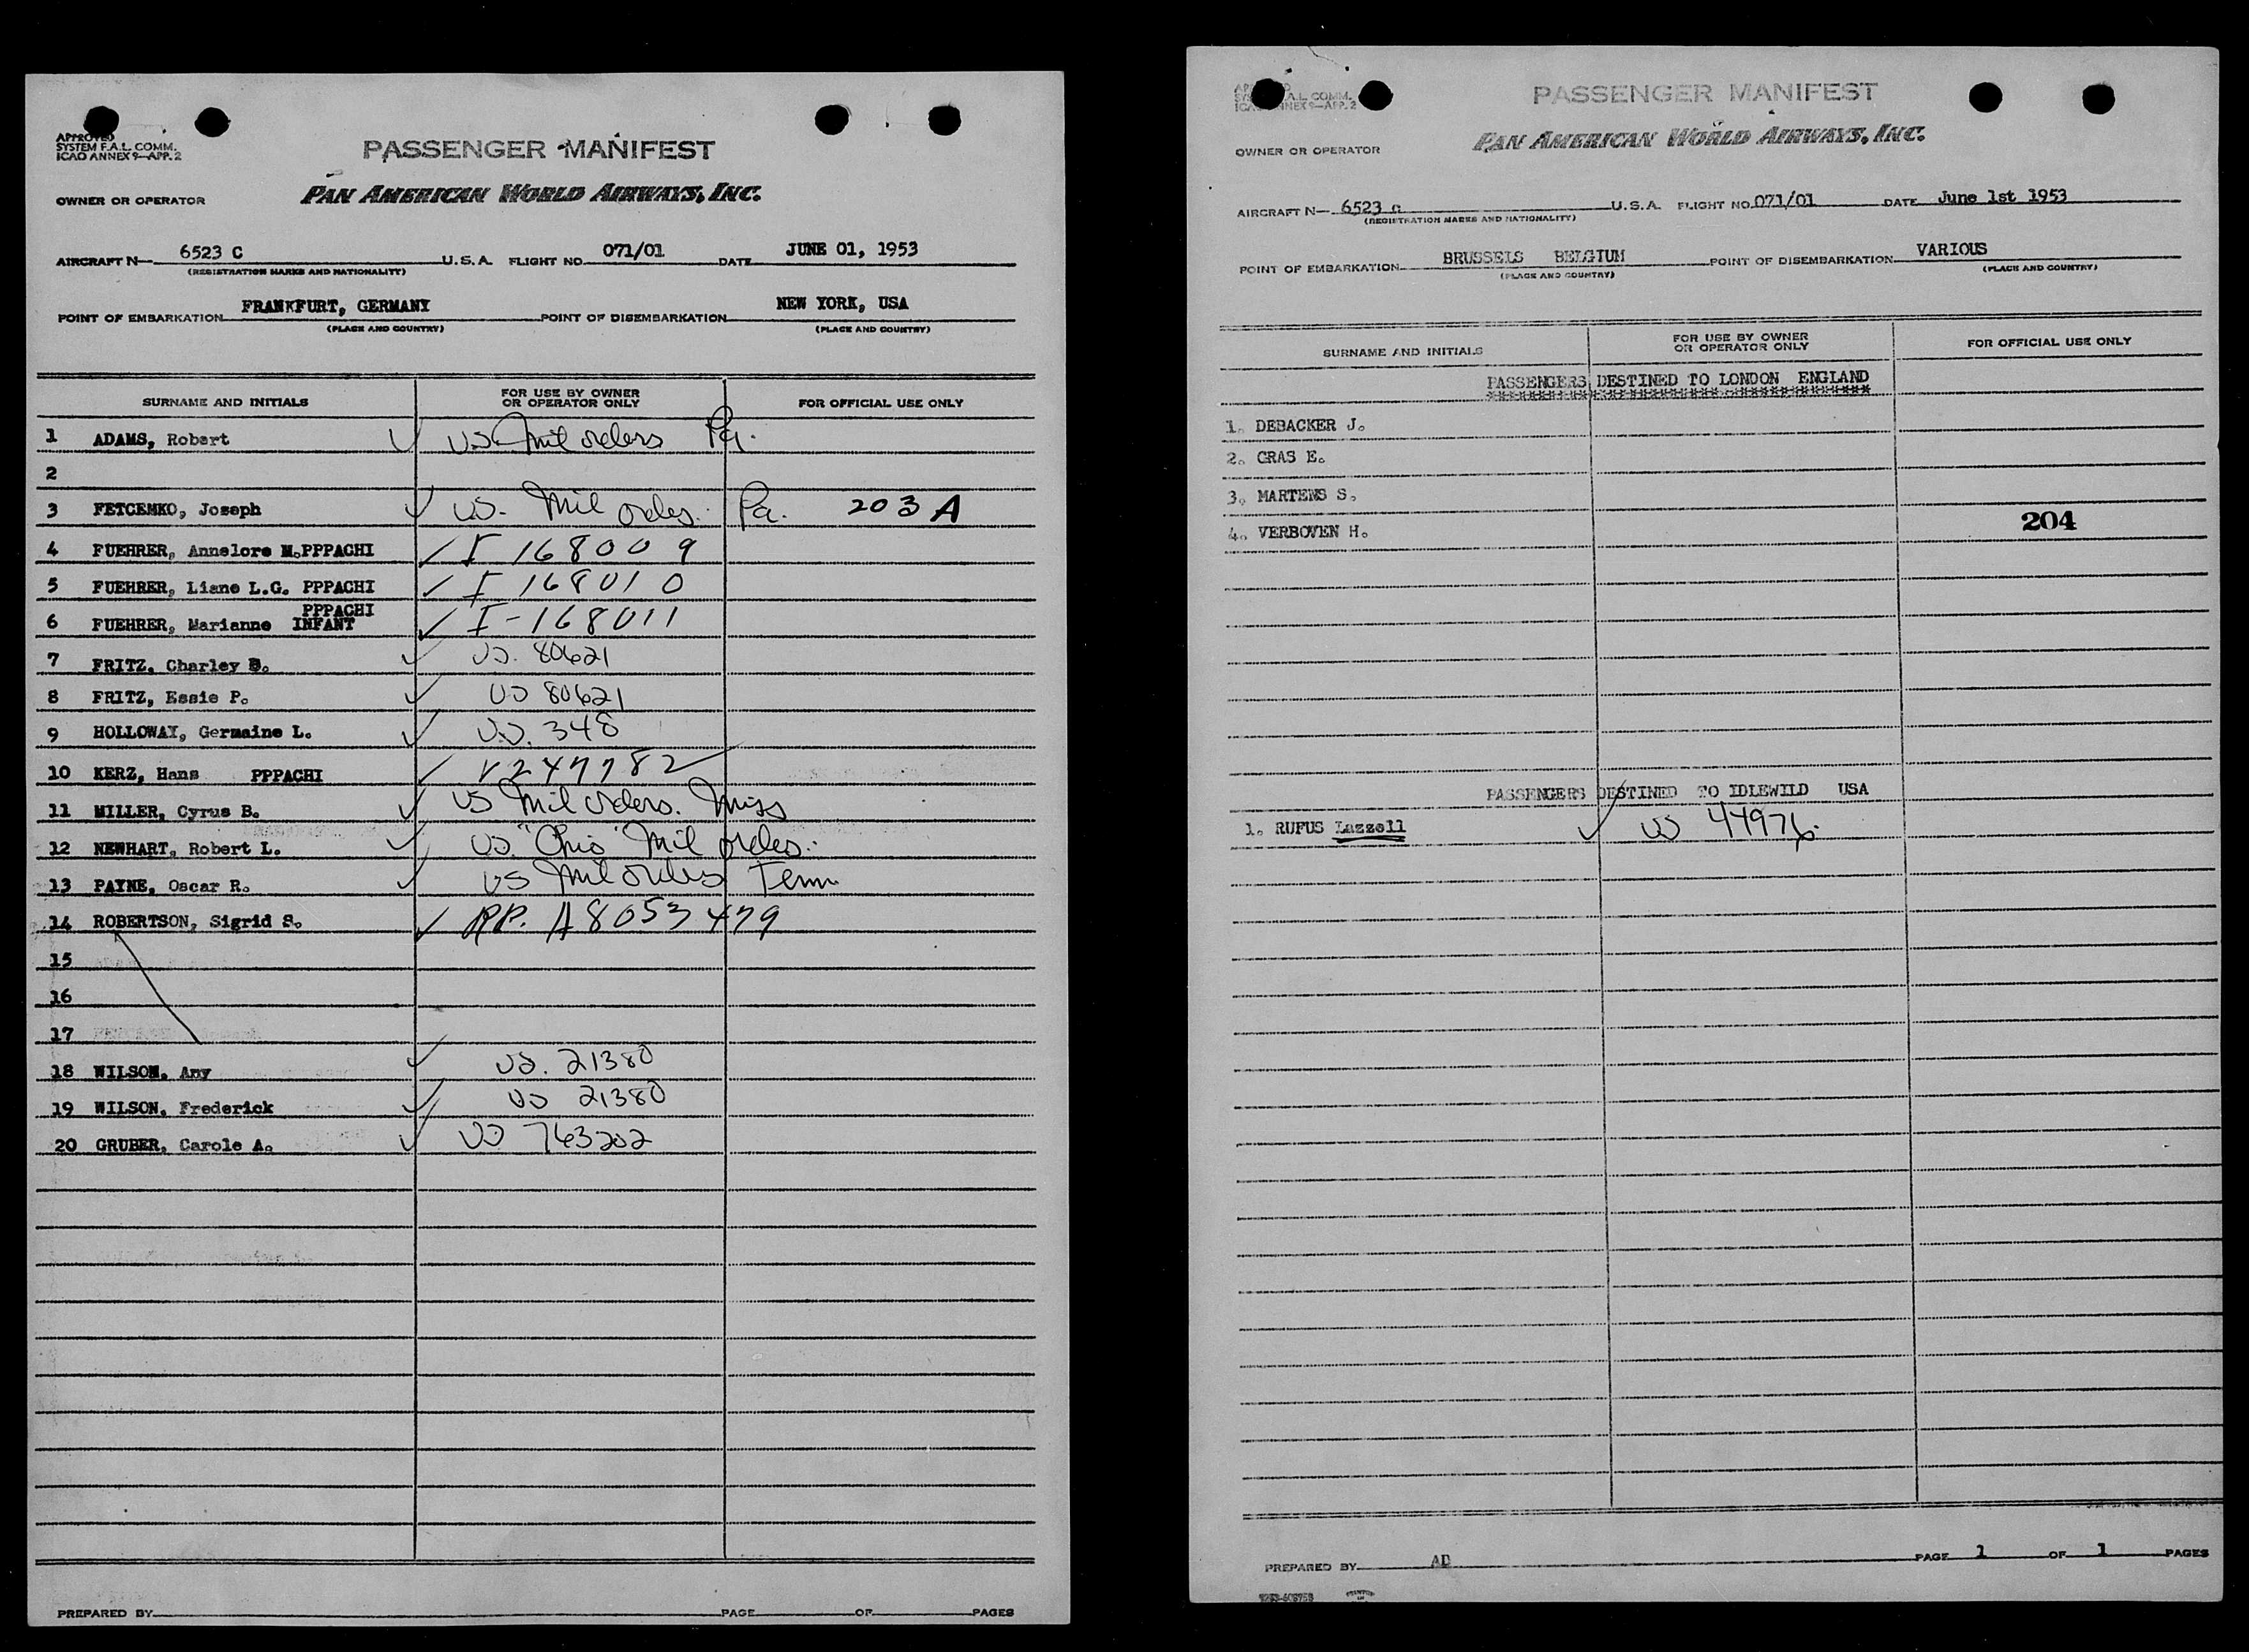 APPROVED
SYSTEM F.A.L. COMM.
ICAO ANNEX 9—APP. 2
PASSENGER MANIFEST
OWNER OR OPERATOR PAN AMERICAN WORLD AIRWAYS, INC.
AIRCRAFT N— 6523 C U.S.A. FLIGHT NO. 071/01 DATE JUNE 01, 1953
(REGISTRATION MARKS AND NATIONALITY)
POINT OF EMBARKATION FRANKFURT, GERMANY POINT OF DISEMBARKATION NEW YORK, USA
(PLACE AND COUNTRY) (PLACE AND COUNTRY)
SURNAME AND INITIALS FOR USE BY OWNER OR OPERATOR ONLY FOR OFFICIAL USE ONLY
1 ADAMS, Robert ✓ US Mil orders Pa.
2
3 FETCEMKO, Joseph ✓ US. Mil orders. Pa. 203 A
4 FUEHRER, Annelore M.PPPACHI ✓ I 168009
5 FUEHRER, Liane L.G. PPPACHI ✓ I 168010
PPPACHI
6 FUEHRER, Marianne INFANT ✓ I-168011
7 FRITZ, Charley B. ✓ US. 80621
8 FRITZ, Essie P. ✓ US 80621
9 HOLLOWAY, Germaine L. ✓ US. 348
10 KERZ, Hans PPPACHI ✓ V247782
11 MILLER, Cyrus B. ✓ US Mil orders. Miss
12 NEWHART, Robert L. ✓ US. "Ohio" Mil orders.
13 PAYNE, Oscar R. ✓ US Mil orders Tenn
14 ROBERTSON, Sigrid S. ✓ RP. A8053479
15
16
17
18 WILSON, Amy ✓ US. 21380
19 WILSON, Frederick ✓ US 21380
20 GRUBER, Carole A. ✓ US 763202
PREPARED BY PAGE OF PAGES
PASSENGER MANIFEST
PAN AMERICAN WORLD AIRWAYS, INC.
OWNER OR OPERATOR
AIRCRAFT N— 6523 c U.S.A. FLIGHT NO. 071/01 DATE June 1st 1953
(REGISTRATION MARKS AND NATIONALITY)
POINT OF EMBARKATION BRUSSELS BELGIUM POINT OF DISEMBARKATION VARIOUS
(PLACE AND COUNTRY) (PLACE AND COUNTRY)
SURNAME AND INITIALS FOR USE BY OWNER OR OPERATOR ONLY FOR OFFICIAL USE ONLY
PASSENGERS DESTINED TO LONDON ENGLAND
1. DEBACKER J.
2. GRAS E.
3. MARTENS S.
4. VERBOVEN H. 204
PASSENGERS DESTINED TO IDLEWILD USA
1. RUFUS Lazzell ✓ US 44976.
PREPARED BY AD PAGE 1 OF 1 PAGES